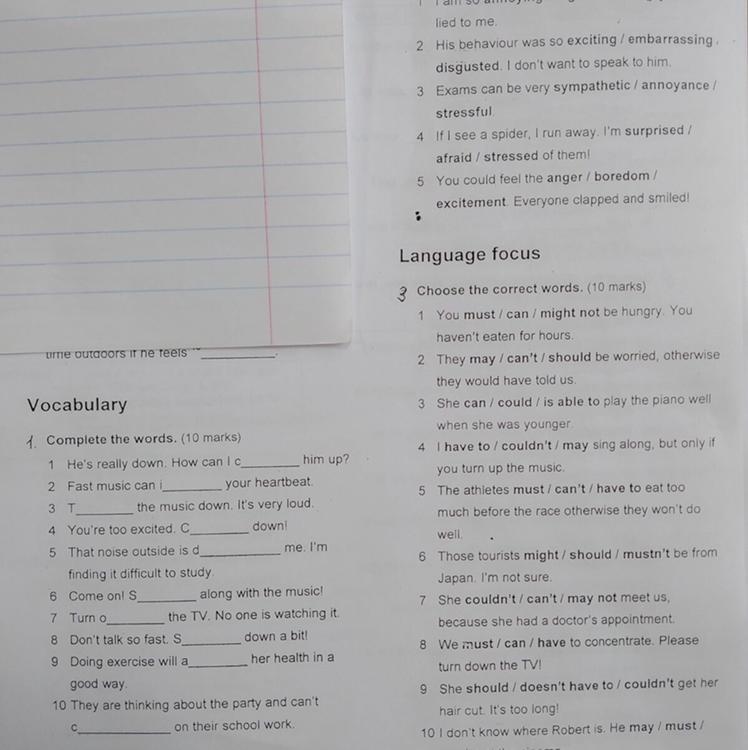 time outdoors if he feels __________.
Vocabulary
1. Complete the words. (10 marks)
1 He's really down. How can I c________ him up?
2 Fast music can i________ your heartbeat.
3 T________ the music down. It's very loud.
4 You're too excited. C________ down!
5 That noise outside is d___________ me. I'm
finding it difficult to study.
6 Come on! S________ along with the music!
7 Turn o________ the TV. No one is watching it.
8 Don't talk so fast. S________ down a bit!
9 Doing exercise will a________ her health in a
good way.
10 They are thinking about the party and can't
c____________ on their school work.
1 I am so
lied to me.
2 His behaviour was so exciting / embarrassing /
disgusted. I don't want to speak to him.
3 Exams can be very sympathetic / annoyance /
stressful.
4 If I see a spider, I run away. I'm surprised /
afraid / stressed of them!
5 You could feel the anger / boredom /
excitement. Everyone clapped and smiled!
Language focus
3 Choose the correct words. (10 marks)
1 You must / can / might not be hungry. You
haven't eaten for hours.
2 They may / can't / should be worried, otherwise
they would have told us.
3 She can / could / is able to play the piano well
when she was younger.
4 I have to / couldn't / may sing along, but only if
you turn up the music.
5 The athletes must / can't / have to eat too
much before the race otherwise they won't do
well.
6 Those tourists might / should / mustn't be from
Japan. I'm not sure.
7 She couldn't / can't / may not meet us,
because she had a doctor's appointment.
8 We must / can / have to concentrate. Please
turn down the TV!
9 She should / doesn't have to / couldn't get her
hair cut. It's too long!
10 I don't know where Robert is. He may / must /